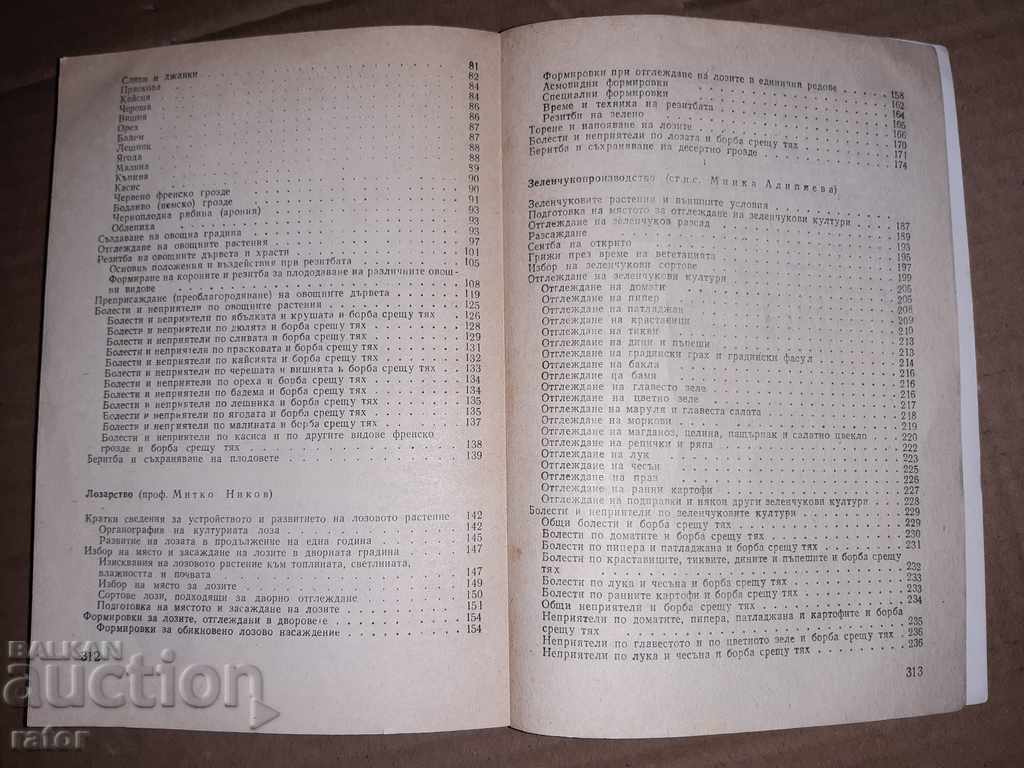 Сливи и джанки . . . 81
Праскова . . . 82
Кайсия . . . 84
Череша . . . 84
Вишня . . . 86
Орех . . . 86
Бадем . . . 87
Лешник . . . 87
Ягода . . . 88
Малина . . . 88
Къпина . . . 89
Касис . . . 90
Червено френско грозде . . . 90
Бодливо (немско) грозде . . . 91
Черноплодна рябина (арония) . . . 93
Облепиха . . . 93
Създаване на овощна градина . . . 93
Отглеждане на овощните растения . . . 97
Резитба на овощните дървета и храсти . . . 101
Основни положения и въздействия при резитбата . . . 105
Формиране на короните и резитба за плододаване на различните овощ-
ни видове . . . 108
Преприсаждане (преоблагородяване) на овощните дървета . . . 119
Болести и неприятели по овощните растения . . . 125
Болести и неприятели по ябълката и крушата и борба срещу тях . . . 126
Болести и неприятели по дюлята и борба срещу тях . . . 128
Болести и неприятели по сливата и борба срещу тях . . . 129
Болести и неприятели по прасковата и борба срещу тях . . . 131
Болести и неприятели по кайсията и борба срещу тях . . . 132
Болести и неприятели по черешата и вишнята и борба срещу тях . . . 133
Болести и неприятели по ореха и борба срещу тях . . . 134
Болести и неприятели по бадема и борба срещу тях . . . 134
Болести и неприятели по лешника и борба срещу тях . . . 135
Болести и неприятели по ягодата и борба срещу тях . . . 135
Болести и неприятели по малината и борба срещу тях . . . 137
Болести и неприятели по касиса и по другите видове френско
грозде и борба срещу тях . . . 138
Беритба и съхраняване на плодовете . . . 139
Лозарство (проф. Митко Ников)
Кратки сведения за устройството и развитието на лозовото растение 142
Органография на културната лоза . . . 142
Развитие на лозата в продължение на една година . . . 145
Избор на място и засаждане на лозите в дворната градина . . . 147
Изисквания на лозовото растение към топлината, светлината,
влажността и почвата . . . 147
Избор на място за лозите . . . 149
Сортове лози, подходящи за дворно отглеждане . . . 150
Подготовка на мястото и засаждане на лозите . . . 151
Формировки за лозите, отглеждани в дворовете . . . 154
Формировки за обикновено лозово насаждение . . . 154
312
Формировки при отглеждане на лозите в единични редове . . .
Асмовидни формировки . . . 158
Специални формировки . . . 162
Време и техника на резитбата . . . 164
Резитби на зелено . . . 165
Торене и напояване на лозите . . . 166
Болести и неприятели по лозата и борба срещу тях . . . 170
Беритба и съхраняване на десертно грозде . . . 171
174
Зеленчукопроизводство (ст.н.с. Минка Адипиева)
Зеленчуковите растения и външните условия . . .
Подготовка на мястото за отглеждане на зеленчукови култури . . .
Отглеждане на зеленчуков разсад . . . 187
Разсаждане . . . 189
Сеитба на открито . . . 193
Грижи през време на вегетацията . . . 195
Избор на зеленчукови сортове . . . 197
Отглеждане на зеленчукови култури . . . 199
Отглеждане на домати . . . 205
Отглеждане на пипер . . . 205
Отглеждане на патладжан . . . 208
Отглеждане на краставици . . . 209
Отглеждане на тикви . . . 210
Отглеждане на дини и пъпеши . . . 211
Отглеждане на градински грах и градински фасул . . . 213
Отглеждане на бакла . . . 214
Отглеждане на бамя . . . 216
Отглеждане на главесто зеле . . . 216
Отглеждане на цветно зеле . . . 217
Отглеждане на маруля и главеста салата . . . 218
Отглеждане на моркови . . . 219
Отглеждане на магданоз, целина, пащърнак и салатно цвекло . . . 220
Отглеждане на репички и ряпа . . . 222
Отглеждане на лук . . . 223
Отглеждане на чесън . . . 225
Отглеждане на праз . . . 226
Отглеждане на ранни картофи . . . 227
Отглеждане на подправки и някои други зеленчукови култури . . . 228
Болести и неприятели по зеленчуковите култури . . . 229
Общи болести и борба срещу тях . . . 229
Болести по доматите и борба срещу тях . . . 230
Болести по пипера и патладжана и борба срещу тях . . . 231
Болести по краставиците, тиквите, дините и пъпешите и борба срещу
тях . . . 232
Болести по лука и чесъна и борба срещу тях . . . 233
Болести по ранните картофи и борба срещу тях . . . 233
Общи неприятели и борба срещу тях . . . 234
Неприятели по доматите, пипера, патладжана и картофите и борба
срещу тях . . . 235
Неприятели по главестото и по цветното зеле и борба срещу тях . . . 236
Неприятели по лука и чесъна и борба срещу тях . . . 236
313
BALKAN
auction
rator